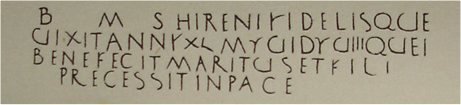 B M S HIRENI FIDELISQUE
UIXITANNYXL MYUIDYUIIIQUEI
BENEFECITMARITUSETFILI
PRECESSITINPACE